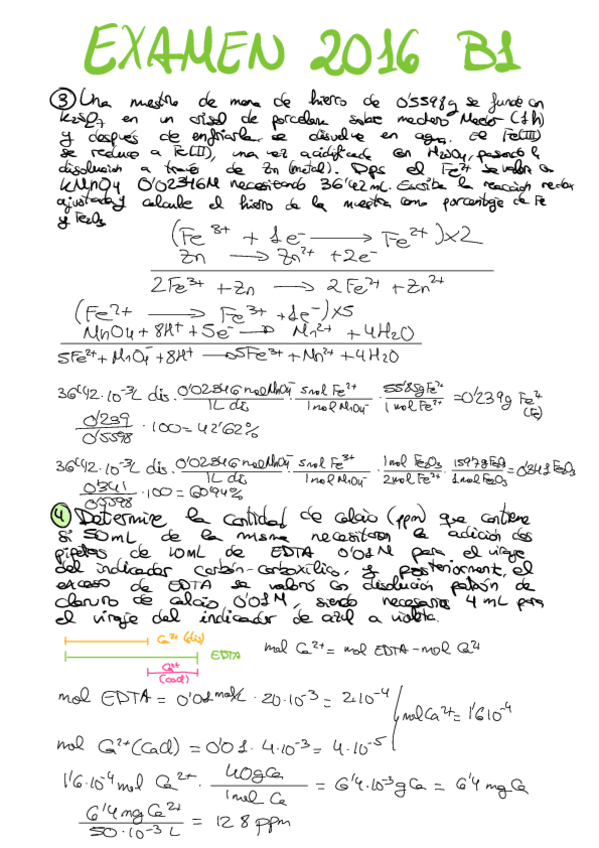 EXAMEN 2016 B1
③ Una muestra de mena de hierro de 0'5598g se funde con
K2S2O7 en un crisol de porcelana sobre mechero Mecker (1h)
y después de enfriarla se disuelve en agua. El Fe(III)
se reduce a Fe(II), una vez acidificada con H2SO4, pasando la
disolución a través de Zn (metal). Dps el Fe2+ se valora con
KMnO4 0'02346M necesitando 36'42 mL. Escribe la reacción redox
ajustada y calcule el hierro de la muestra como porcentaje de Fe
y Fe2O3
(Fe3+ + 1e- → Fe2+)x2
Zn → Zn2+ + 2e-
2Fe3+ + Zn → 2Fe2+ + Zn2+
(Fe2+ → Fe3+ + 1e-)x5
MnO4 + 8H+ + 5e- → Mn2+ + 4H2O
5Fe2+ + MnO4- + 8H+ → 5Fe3+ + Mn2+ + 4H2O
36'42·10-3 L dis. · 0'02346 mol MnO4- / 1L dis · 5 mol Fe2+ / 1 mol MnO4- · 55'85g Fe2+ / 1 mol Fe2+ = 0'239g Fe2+ (Fe)
0'239 / 0'5598 · 100 = 42'62%
36'42·10-3 L dis. · 0'02346 mol MnO4- / 1L dis · 5 mol Fe3+ / 1 mol MnO4- · 1 mol Fe2O3 / 2 mol Fe3+ · 159'7g Fe2O3 / 1 mol Fe2O3 = 0'341 Fe2O3
0'341 / 0'5598 · 100 = 60'94%
④ Determine la cantidad de calcio (ppm) que contiene
si 50mL de la misma necesitaron la adición dos
pipetas de 10mL de EDTA 0'01M para el viraje
del indicador carbón-carboxílico, y posteriorment, el
exceso de EDTA se valoró con disolución patrón de
cloruro de calcio 0'01M, siendo necesarios 4 mL para
el viraje del indicador de azul a violeta.
Ca2+ (dis)
EDTA
Ca2+
(CaCl)
mol Ca2+ = mol EDTA - mol Ca2+
mol EDTA = 0'01 mol/L · 20·10-3 = 2·10-4
mol Ca2+ = 1'6·10-4
mol Ca2+ (CaCl) = 0'01 · 4·10-3 = 4·10-5
1'6·10-4 mol Ca2+ · 40g Ca / 1 mol Ca = 6'4·10-3 g Ca = 6'4 mg Ca
6'4 mg Ca2+ / 50·10-3 L = 128 ppm